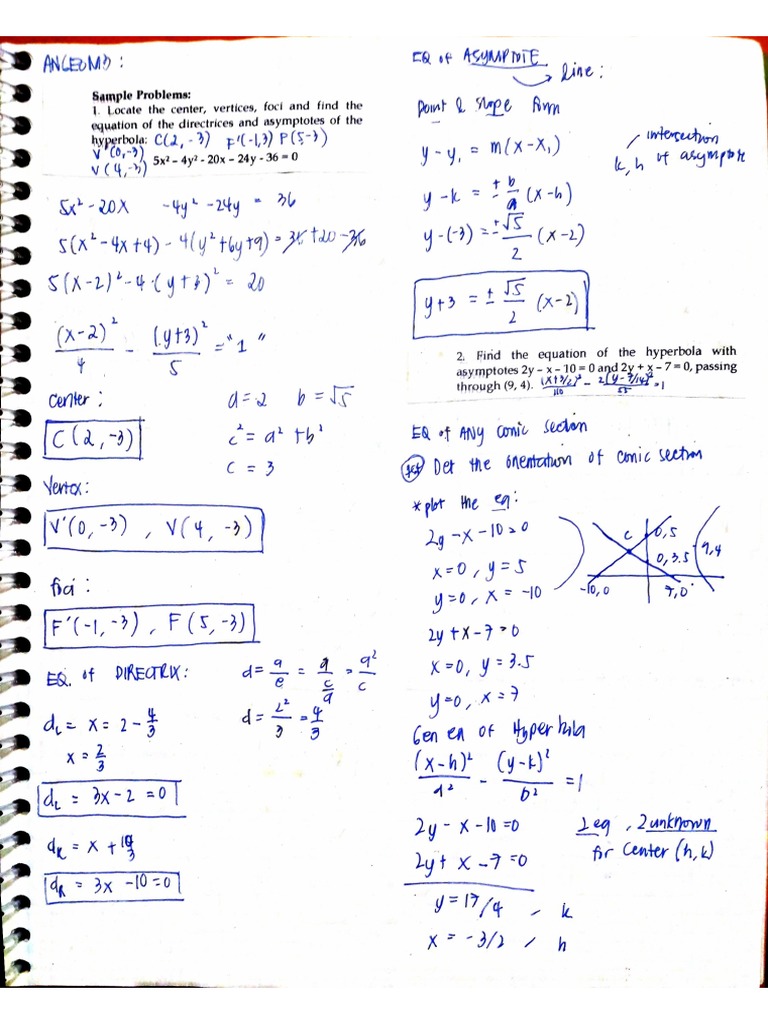 ANGEOM3 :
Sample Problems:
1. Locate the center, vertices, foci and find the
equation of the directrices and asymptotes of the
hyperbola: C(2, -3) F'(-1,3) P(5,-3)
V'(0,-3) 5x² – 4y² - 20x – 24y - 36 = 0
V(4,-3)
5x² - 20x - 4y² - 24y = 36
5(x² - 4x + 4) - 4(y² + 6y + 9) = 36 + 20 - 36
5(x-2)² - 4·(y+3)² = 20
(x-2)²/4 - (y+3)²/5 = "1"
center : a = 2 b = √5
C(2, -3) c² = a² + b²
c = 3
Vertex:
V'(0, -3) , V(4, -3)
foci :
F'(-1, -3) , F(5, -3)
EQ. of DIRECTRIX: d = a/e = a/(c/a) = a²/c
d = 2²/3 = 4/3
dL = x = 2 - 4/3
x = 2/3
dL = 3x - 2 = 0
dR = x + 10/3
dR = 3x - 10 = 0
EQ of ASYMPTOTE
line :
Point & Slope Form
y - y₁ = m(x - x₁)
intersection
k, h of asymptote
y - k = ± b/a (x - h)
y - (-3) = ± √5/2 (x - 2)
y + 3 = ± √5/2 (x - 2)
2. Find the equation of the hyperbola with
asymptotes 2y – x – 10 = 0 and 2y + x – 7 = 0, passing
through (9, 4).
EQ of ANY conic section
Det the orientation of conic section
* plot the eq :
2y - x - 10 = 0
x = 0, y = 5
y = 0, x = -10
2y + x - 7 = 0
x = 0, y = 3.5
y = 0, x = 7
C 0,5
0,3.5 9,4
-10,0 7,0
Gen eq of Hyperbola
(x-h)²/a² - (y-k)²/b² = 1
2y - x - 10 = 0 2 eq , 2 unknown
2y + x - 7 = 0 for center (h, k)
y = 17/4 , k
x = -3/2 , h